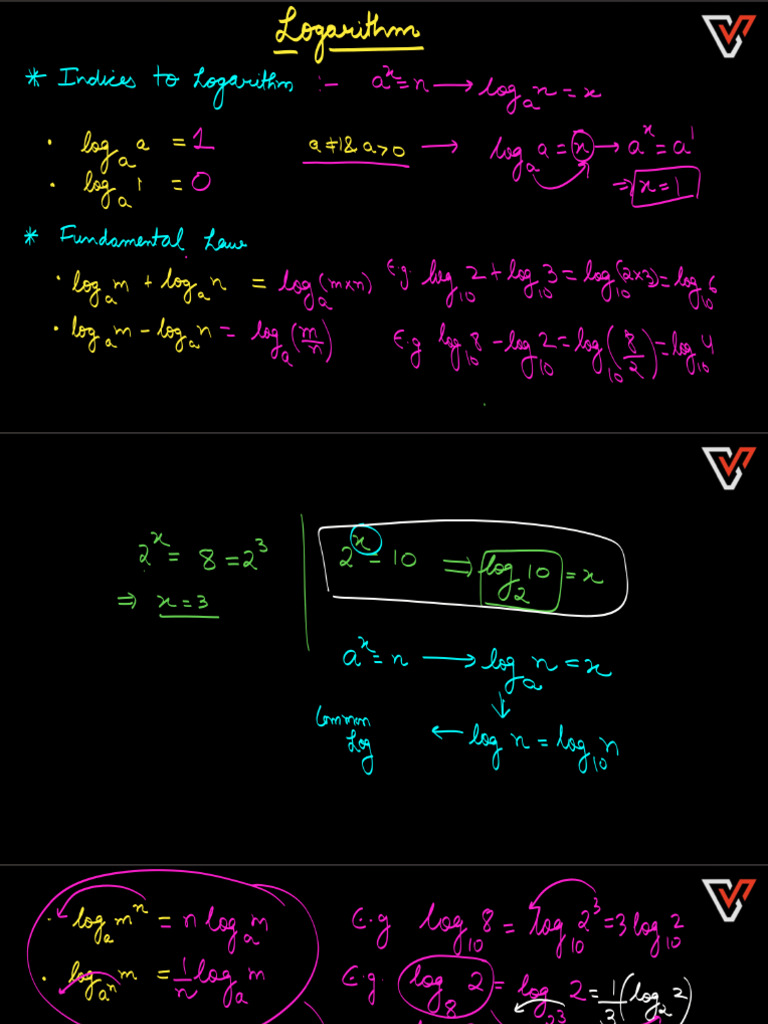 Logarithm
* Indices to Logarithm :- aˣ = n → logₐ n = x
• logₐ a = 1 a ≠ 1 & a > 0 → logₐ a = x → aˣ = a¹
• logₐ 1 = 0 ⇒ x = 1
* Fundamental Law
• logₐ m + logₐ n = logₐ (m×n) E.g. log₁₀ 2 + log₁₀ 3 = log₁₀ (2×3) = log₁₀ 6
• logₐ m - logₐ n = logₐ (m/n) E.g log₁₀ 8 - log₁₀ 2 = log₁₀ (8/2) = log₁₀ 4
2ˣ = 8 = 2³
⇒ x = 3
2ˣ = 10 ⇒ log₂ 10 = x
aˣ = n → logₐ n = x
↓
Common Log ← log n = log₁₀ n
• logₐ mⁿ = n logₐ m E.g log₁₀ 8 = log₁₀ 2³ = 3 log₁₀ 2
• log_(aⁿ) m = 1/n logₐ m E.g. log₈ 2 = log_(2³) 2 = 1/3 (log₂ 2)